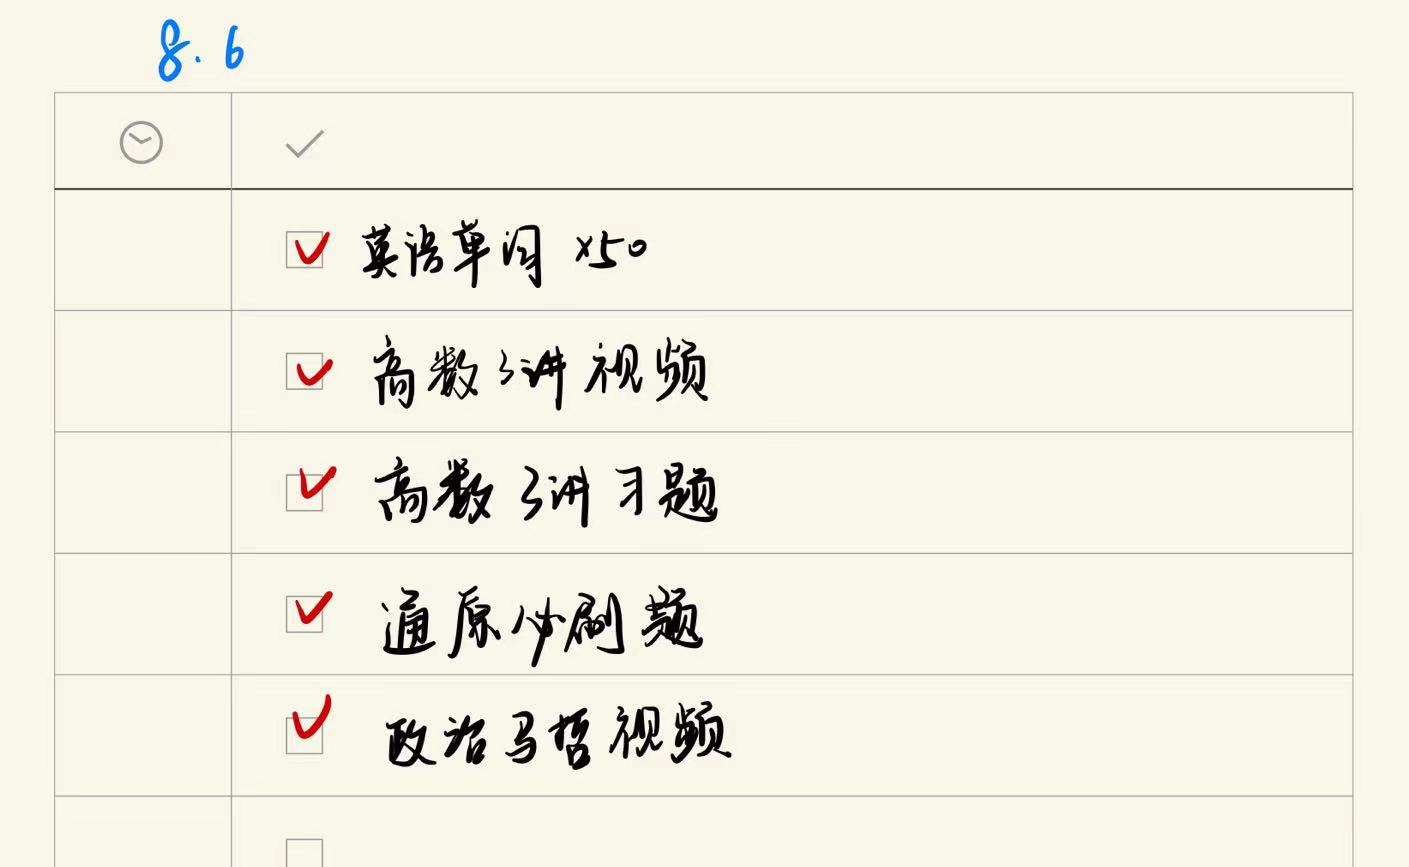 8.6
英语单词 ×50
高数3讲视频
高数3讲习题
通原必刷题
政治马哲视频